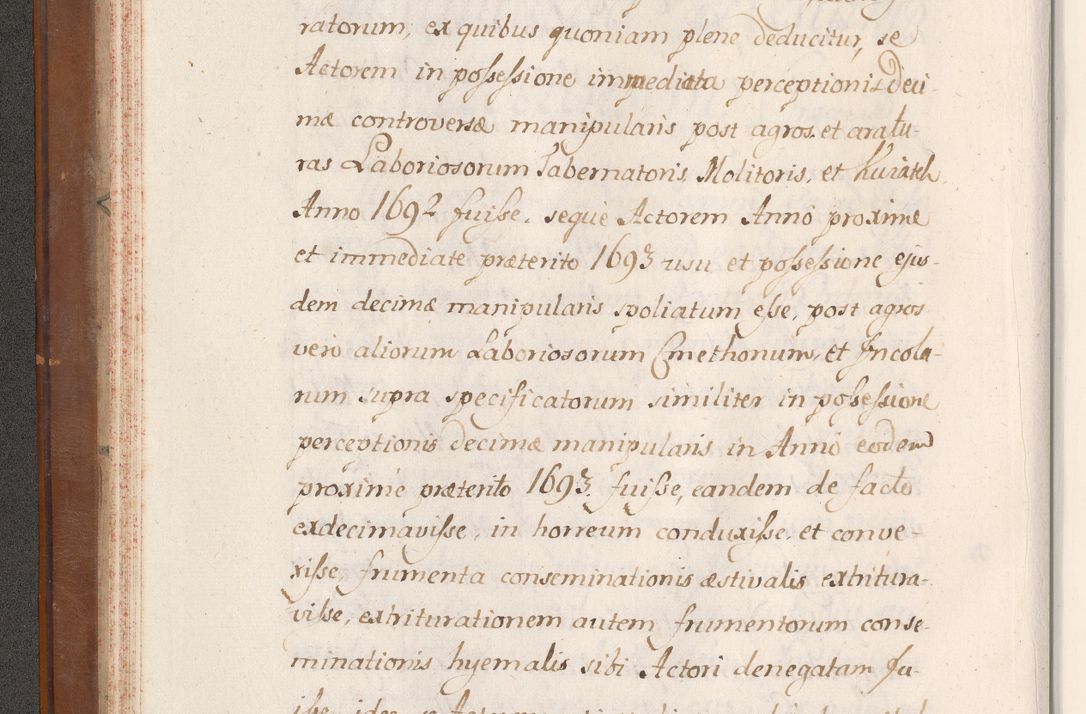 ratorum, ex quibus quoniam plene deducitur, se
Actorem in possessione immediata perceptionis deci-
mæ controversæ manipularis post agros et aratu-
ras Laboriosorum Tabernatoris, Molitoris, et Kuiatek
Anno 1692 fuisse, seque Actorem Anno proxime
et immediate præterito 1693 usu et possessione ejus-
dem decimæ manipularis spoliatum esse, post agros
vero aliorum Laboriosorum Cmethonum, et Incola-
rum supra specificatorum similiter in possessione
perceptionis decimæ manipularis in Anno eodem
proxime præterito 1693. fuisse, eandem de facto
exdecimavisse, in horreum conduxisse, et conve-
xisse, frumenta conseminationis æstivalis extritura-
visse, extriturationem autem frumentorum conse-
minationis hyemalis sibi Actori denegatam fu-